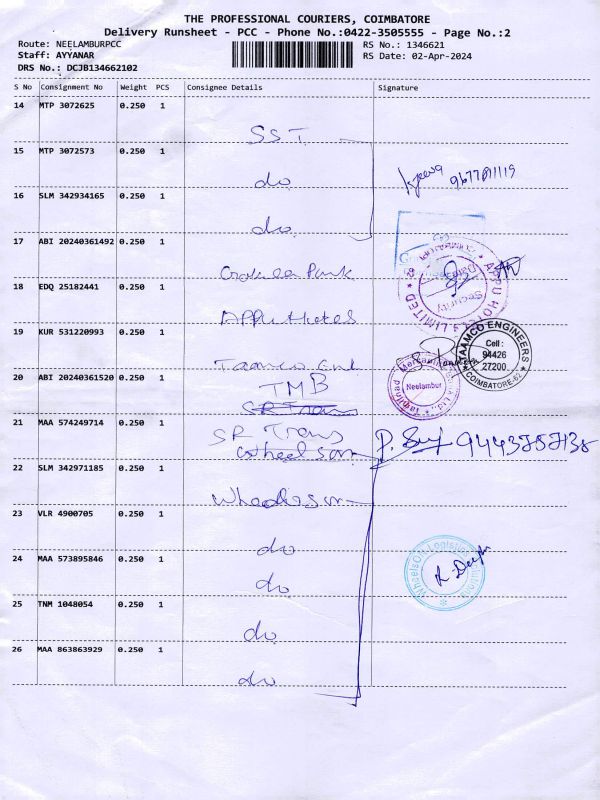 THE PROFESSIONAL COURIERS, COIMBATORE
Delivery Runsheet - PCC - Phone No.:0422-3505555 - Page No.:2
Route: NEELAMBURPCC RS No.: 1346621
Staff: AYYANAR RS Date: 02-Apr-2024
DRS No.: DCJB134662102
S No Consignment No Weight PCS Consignee Details Signature
14 MTP 3072625 0.250 1
SST
15 MTP 3072573 0.250 1
do
16 SLM 342934165 0.250 1
do
17 ABI 20240361492 0.250 1
Park
18 EDQ 25182441 0.250 1
APPU Hotels
APPU HOTELS LIMITED
Security
19 KUR 531220993 0.250 1
Taamco
TAAMCO ENGINEERS
Cell :
94426
27200
COIMBATORE-62
20 ABI 20240361520 0.250 1
TMB
SR Trans
Neelambur
21 MAA 574249714 0.250 1
SR Trans
22 SLM 342971185 0.250 1
23 VLR 4900705 0.250 1
do
WheelsON Logistics Solutions
24 MAA 573895846 0.250 1
do
25 TNM 1048054 0.250 1
do
26 MAA 863863929 0.250 1
do